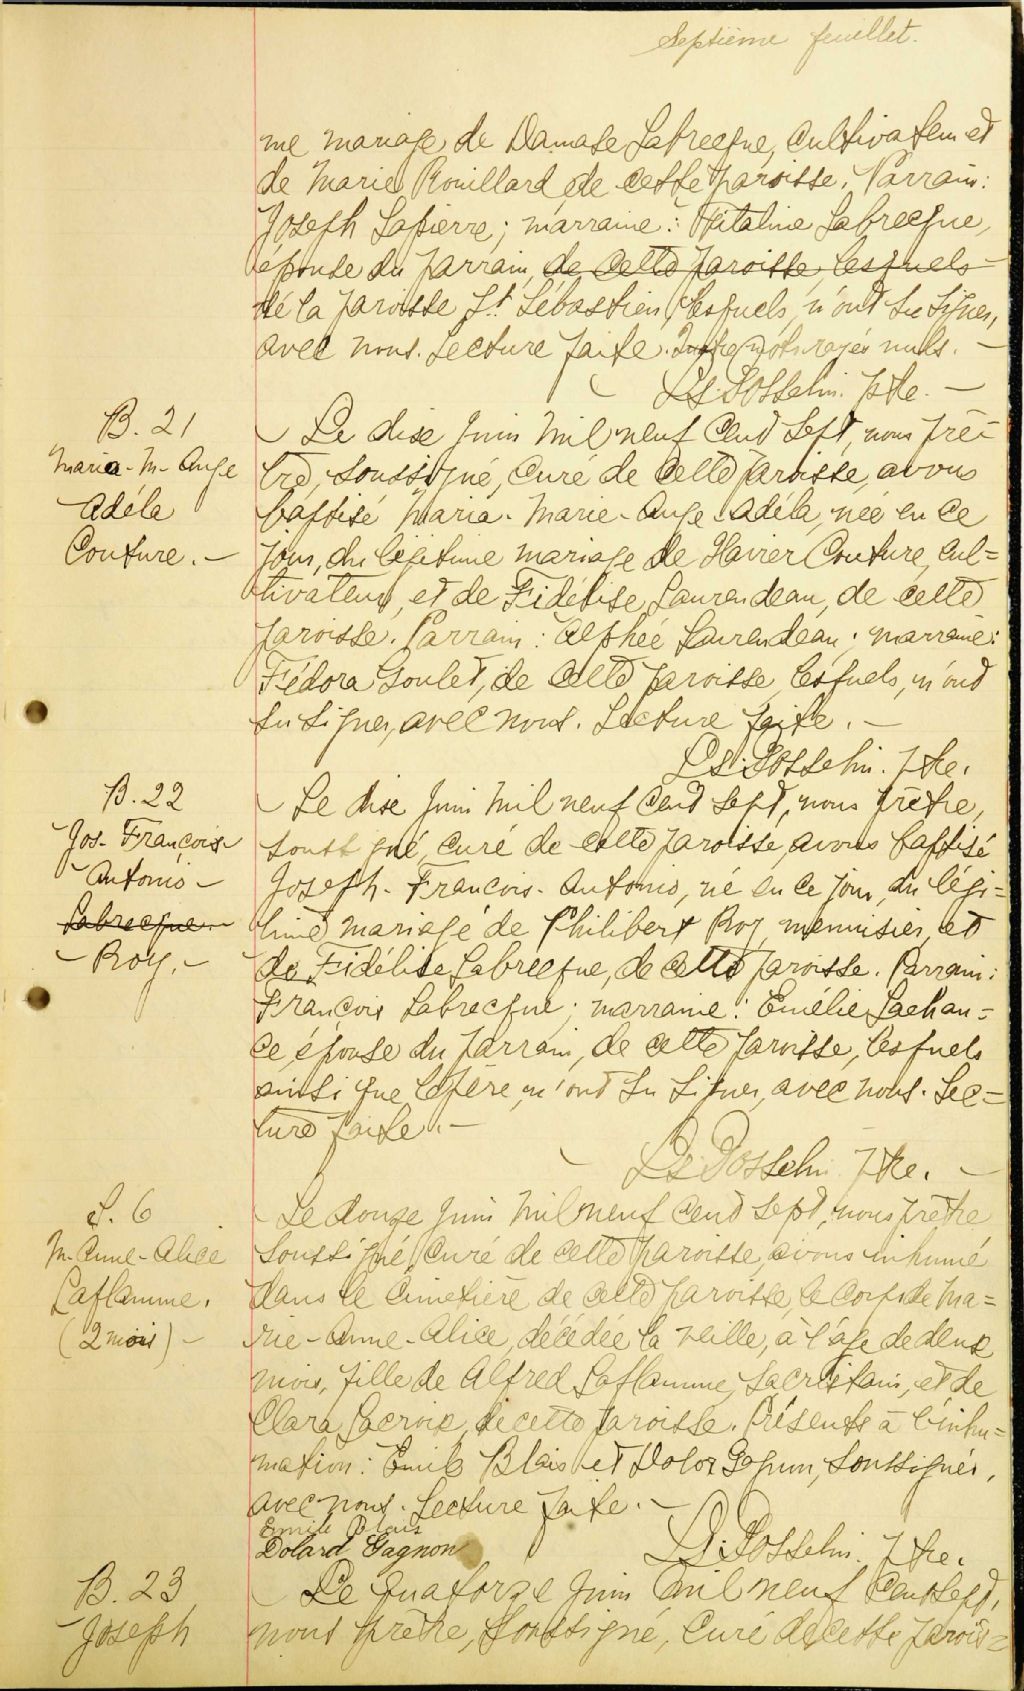 Septième feuillet.
me mariage de Damase Labrecque, cultivateur et
de Marie Rouillard de cette paroisse. Parrain:
Joseph Lapierre; marraine: Vitaline Labrecque,
épouse du parrain, de cette paroisse, lesquels
de la paroisse St Sébastien, lesquels, n'ont su signer,
avec nous. Lecture faite. Quatre mots rayés nuls. —
Ls. Gosselin. Ptre. —
B. 21
Maria-M-Ange
Adéla
Couture. —
Le dix Juin mil neuf cent sept, nous prê-
tre, soussigné, curé de cette paroisse, avons
baptisé Maria-Marie-Ange-Adéla, née en ce
jour, du légitime mariage de Xavier Couture, cul=
tivateur, et de Fidélise Laurendeau, de cette
paroisse. Parrain: Alphée Laurendeau; marraine:
Fédora Goulet, de cette paroisse, lesquels, n'ont
su signer, avec nous. Lecture faite. —
Ls. Gosselin. Ptre.
B. 22
Jos- François-
Antonio —
Labrecque. —
— Roy. —
Le dix Juin mil neuf cent sept, nous prêtre,
soussigné, curé de cette paroisse, avons baptisé
Joseph-François-Antonio, né en ce jour, du légi=
time mariage de Philibert Roy, menuisier, et
de Fidélise Labrecque, de cette paroisse. Parrain:
François Labrecque; marraine: Emélie Lachan=
ce, épouse du parrain, de cette paroisse, lesquels
ainsi que le père, n'ont su signer, avec nous. Lec=
ture faite. —
Ls. Gosselin. Ptre. —
S. 6
M-Anne-Alice
Laflamme.
(2 mois) —
Le douze Juin mil neuf cent sept, nous prêtre
soussigné, curé de cette paroisse, avons inhumé
dans le cimetière de cette paroisse, le corps de Ma=
rie-Anne-Alice, décédée la veille, à l'âge de deux
mois, fille de Alfred Laflamme, sacristain, et de
Clara Lacroix, de cette paroisse. Présents à l'inhu=
mation: Emile Blais et Dolor Gagnon, soussignés,
avec nous. Lecture faite. —
Emile Blais
Dolard Gagnon
Ls. Gosselin. Ptre.
B. 23
Joseph
Le quatorze Juin mil neuf cent sept,
nous prêtre, soussigné, curé de cette parois=